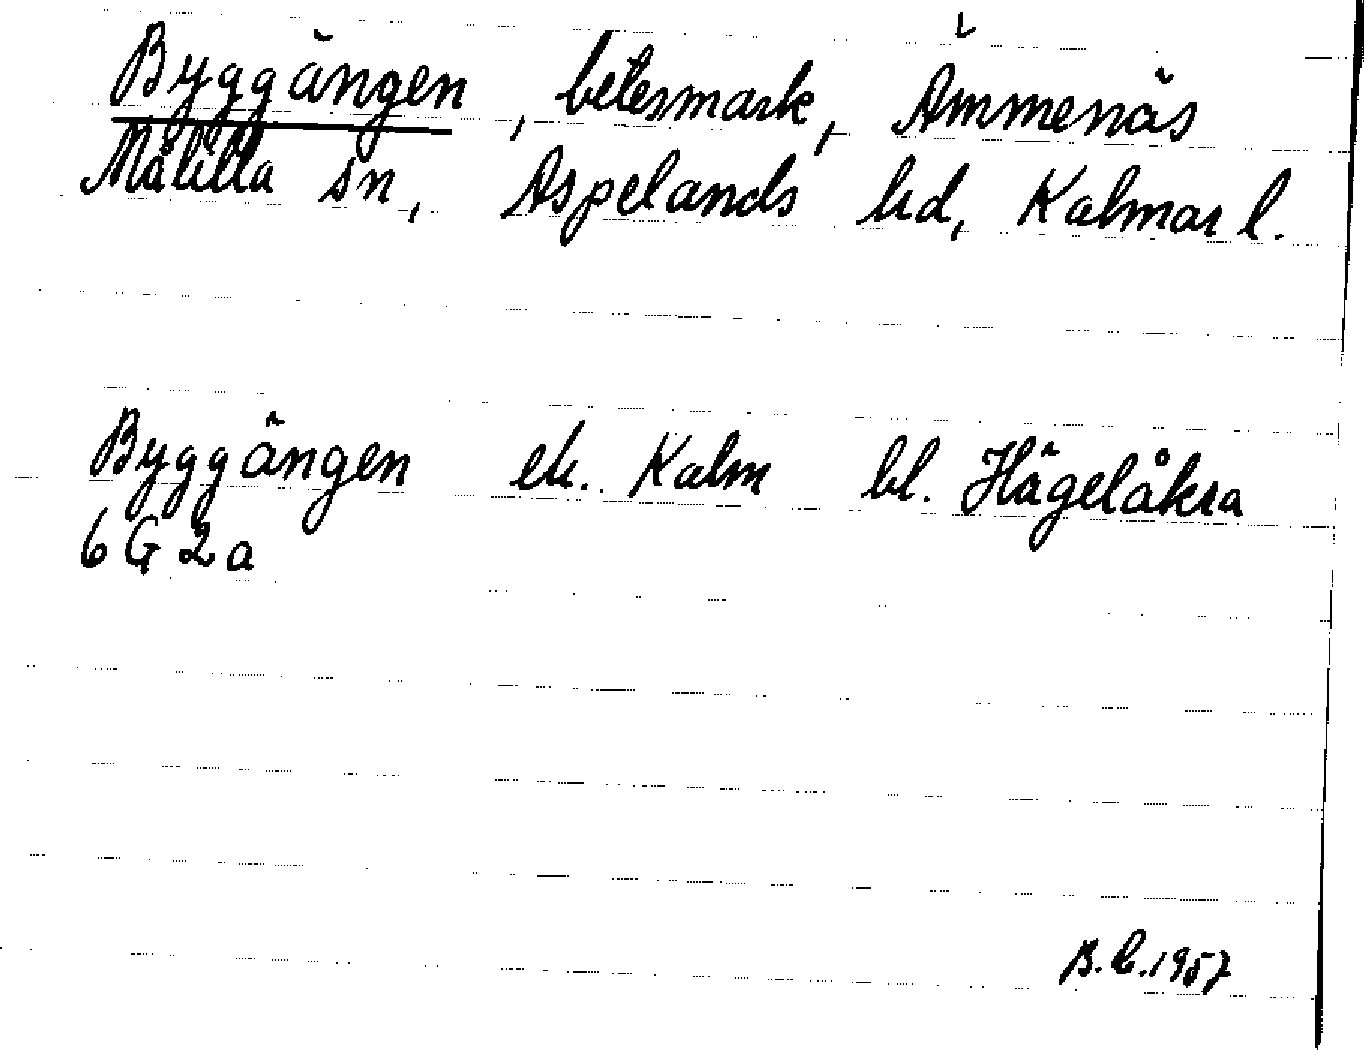 Byggängen, betesmark, Ämmenäs
Målilla sn, Aspelands hd, Kalmar l.
Byggängen ek. Kalm bl. Hägelåkra
6 G 2 a
B.L. 1957